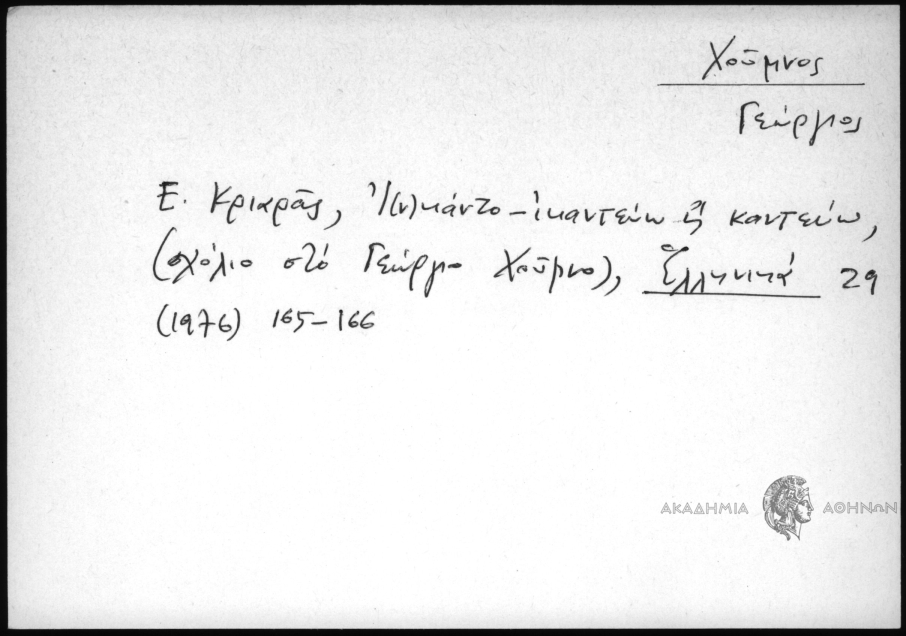 Χοῦμνος
Γεώργιος
Ε. Κριαρᾶς, Ἰ(ν)κάντο – ἰκαντεύω ἢ καντεύω,
(σχόλιο στὸ Γεώργιο Χοῦμνο), Ἑλληνικά 29
(1976) 165–166
ΑΚΑΔΗΜΙΑ ΑΘΗΝΩΝ